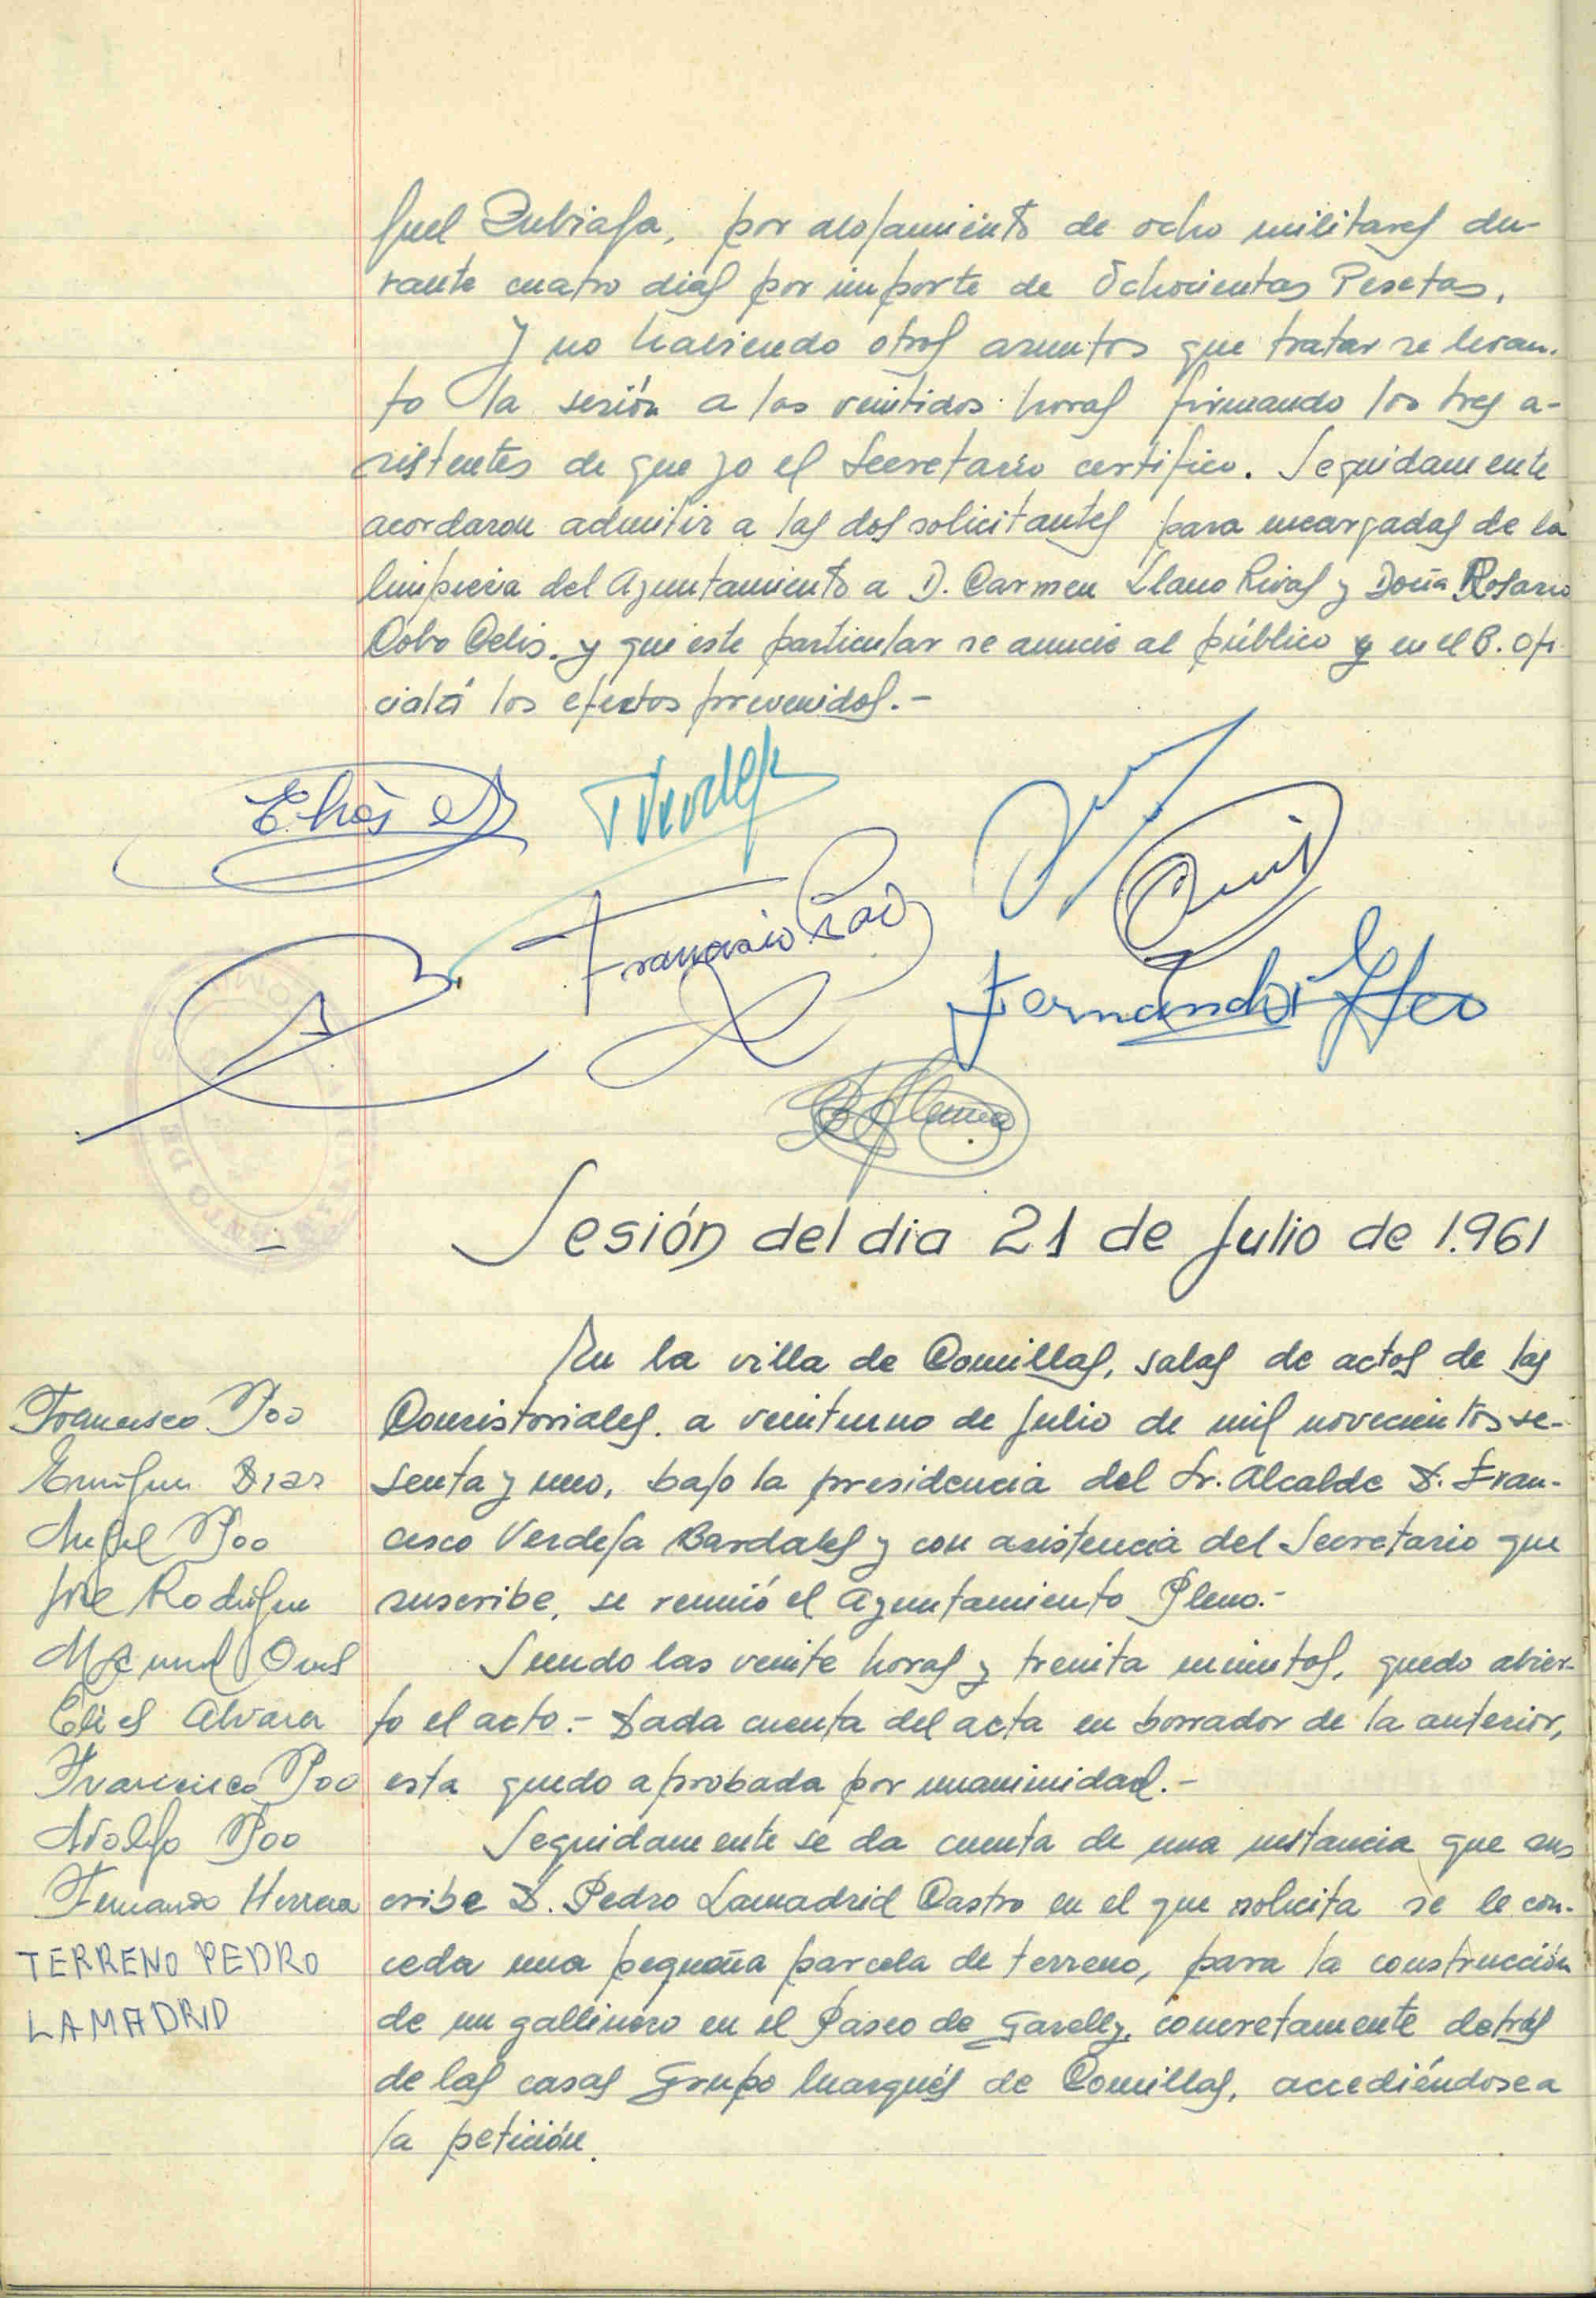 guel Zubiaga, por alojamiento de ocho militares du-
rante cuatro dias por importe de Ochocientas Pesetas.
Y no habiendo otros asuntos que tratar se levan-
to la sesión a las veintidos horas firmando los tres a-
sistentes de que yo el Secretario certifico. Seguidamente
acordaron admitir a las dos solicitantes para encargadas de la
limpieza del Ayuntamiento a D. Carmen Llano Rivas y Doña Rosario
Cobo Celis. y que este particular se anuncie al público y en el B. Ofi
cial á los efectos prevenidos.-
Elías
Verdeja
Francisco Poo
Fernando
Sesión del dia 21 de Julio de 1.961
En la villa de Comillas, salas de actos de las
Francisco Poo
Consistoriales. a veintiuno de Julio de mil novecientos se-
Enrique Diaz
senta y uno, bajo la presidencia del Sr. Alcalde D. Fran-
Angel Poo
cisco Verdeja Bardales y con asistencia del Secretario que
José Rodrigue
suscribe, se reunió el Ayuntamiento Pleno.-
Manuel
Siendo las veinte horas y treinta minutos, quedo abier-
Elies Alvarez
to el acto.- Dada cuenta del acta en borrador de la anterior,
Francisco Poo
esta quedo aprobada por unanimidad.-
Adolfo Poo
Seguidamente se da cuenta de una instancia que sus
Fernando Herrera
cribe D. Pedro Lamadrid Castro en el que solicita se le con-
TERRENO PEDRO
ceda una pequeña parcela de terreno, para la construcción
LAMADRID
de un gallinero en el Paseo de Garelly, concretamente detrás
de las casas Grupo Marqués de Comillas, accediéndose a
la petición.